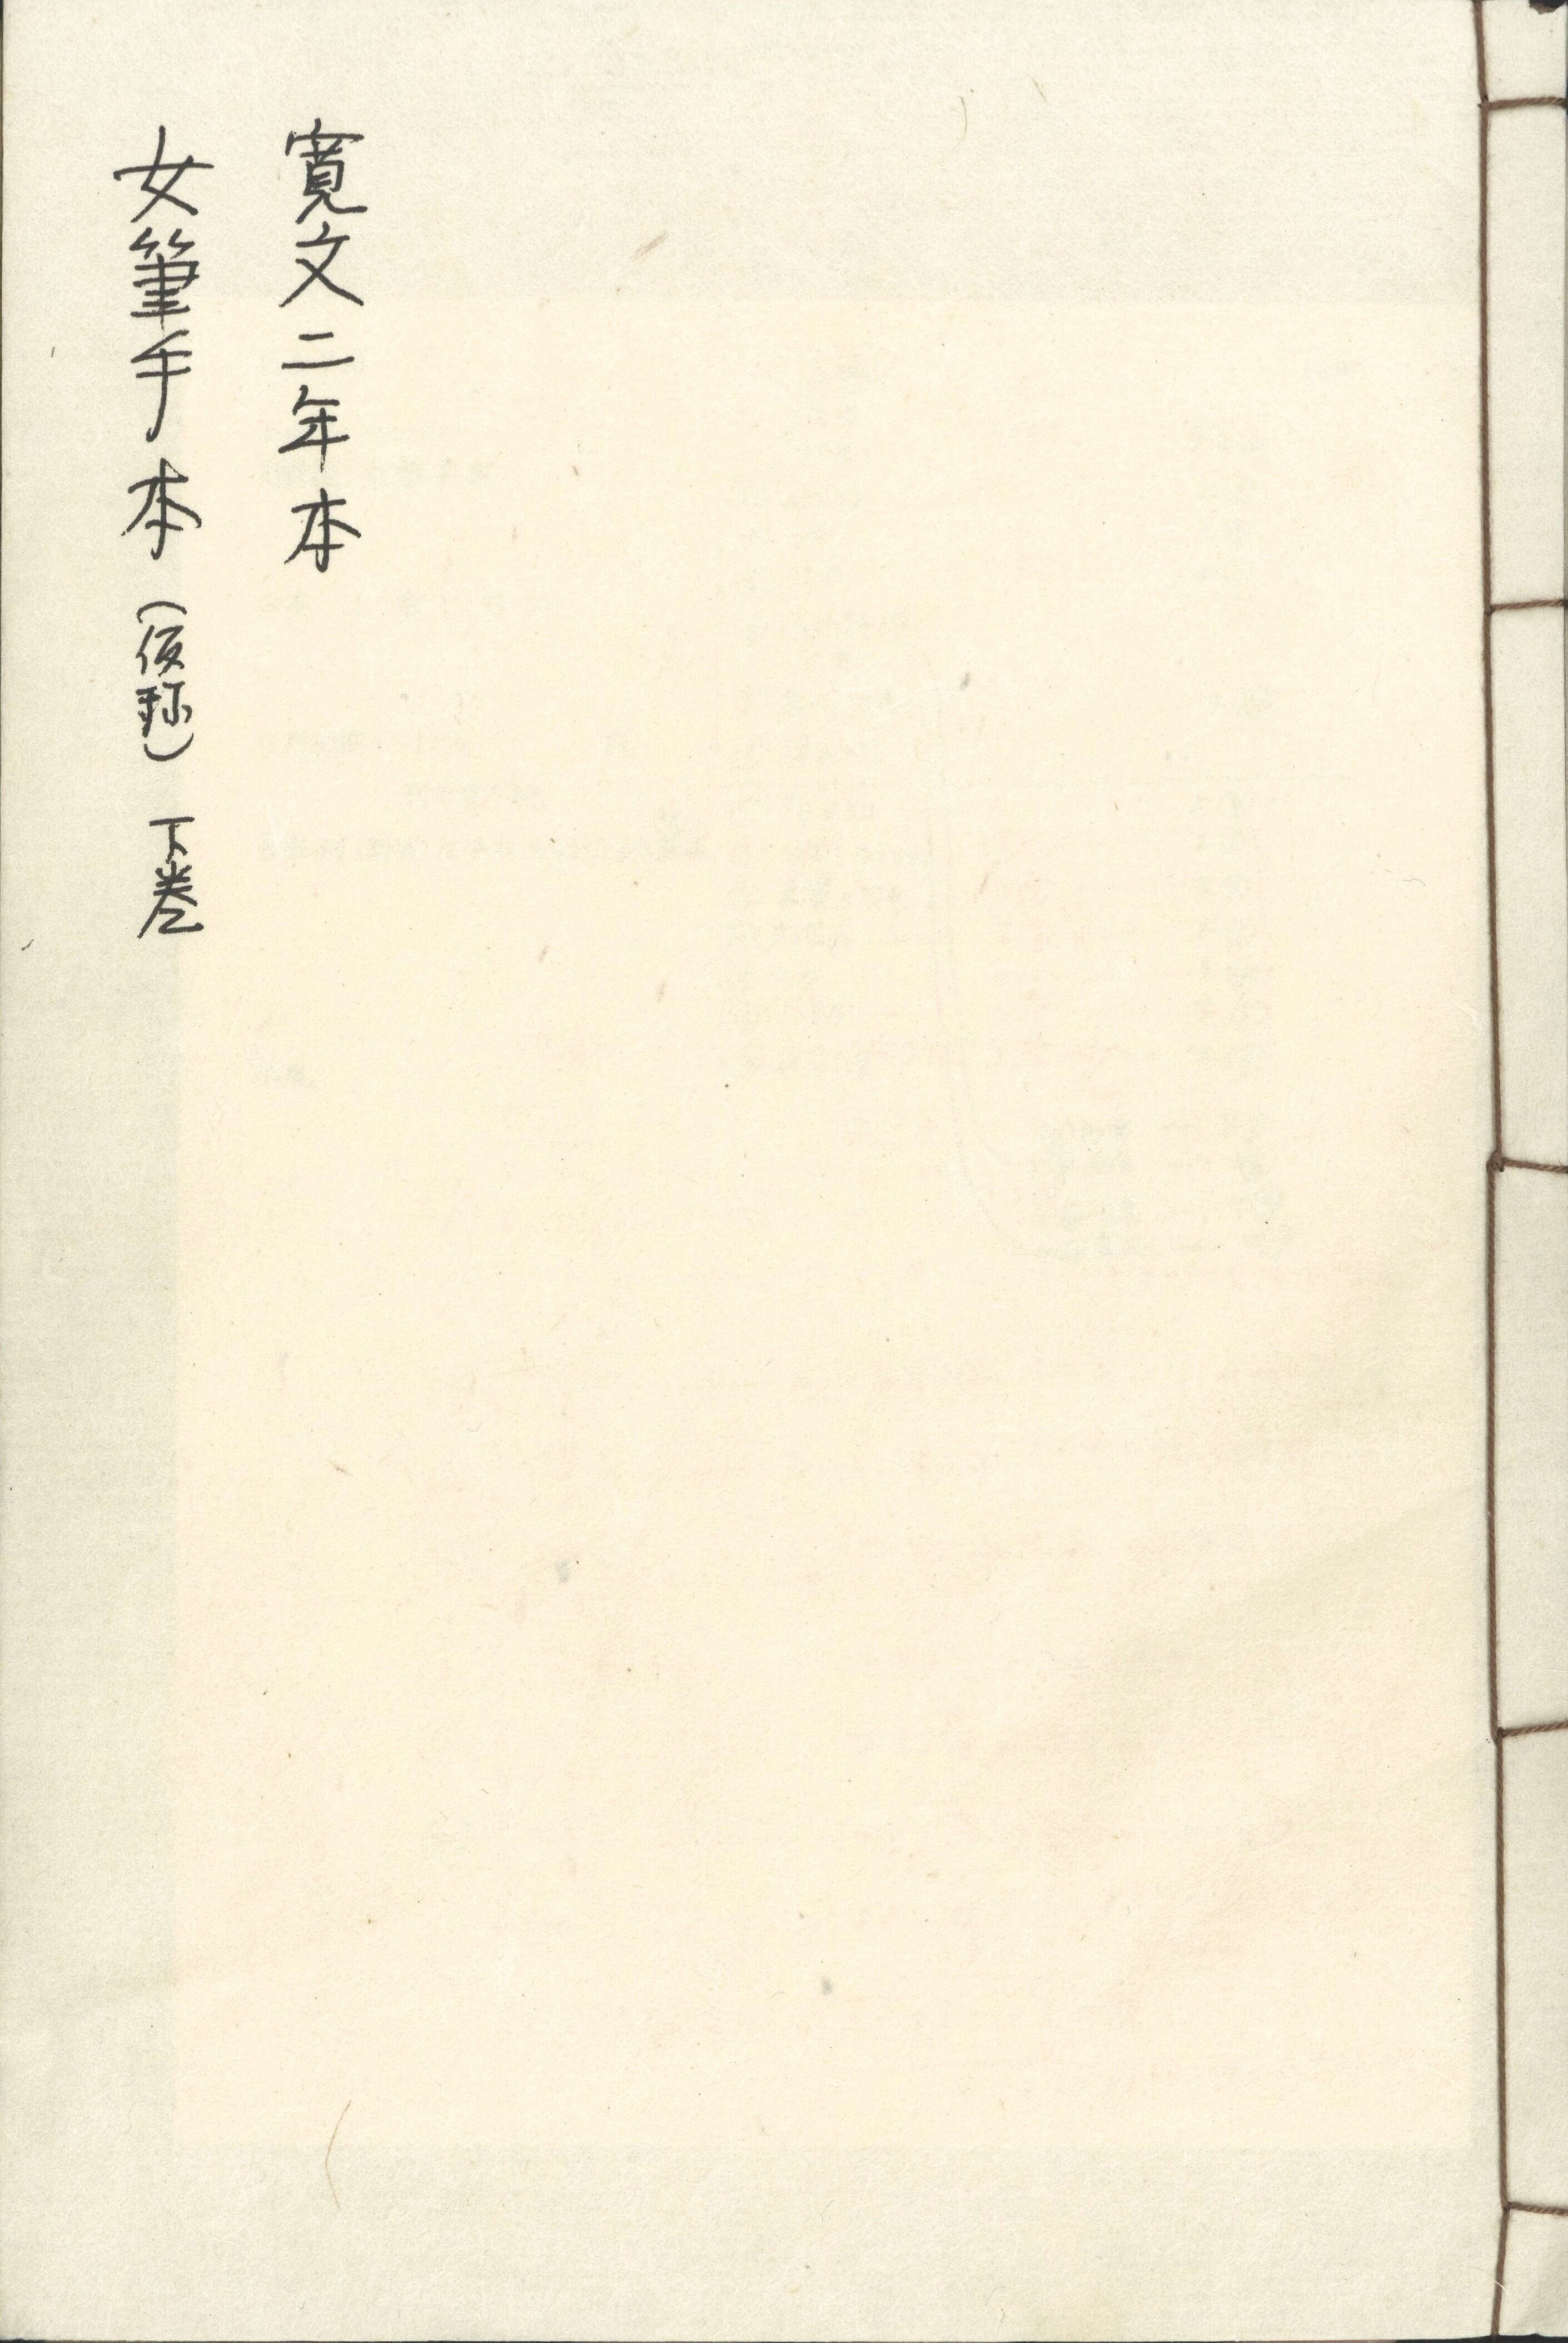 寛文二年本
女筆手本（仮称）下巻